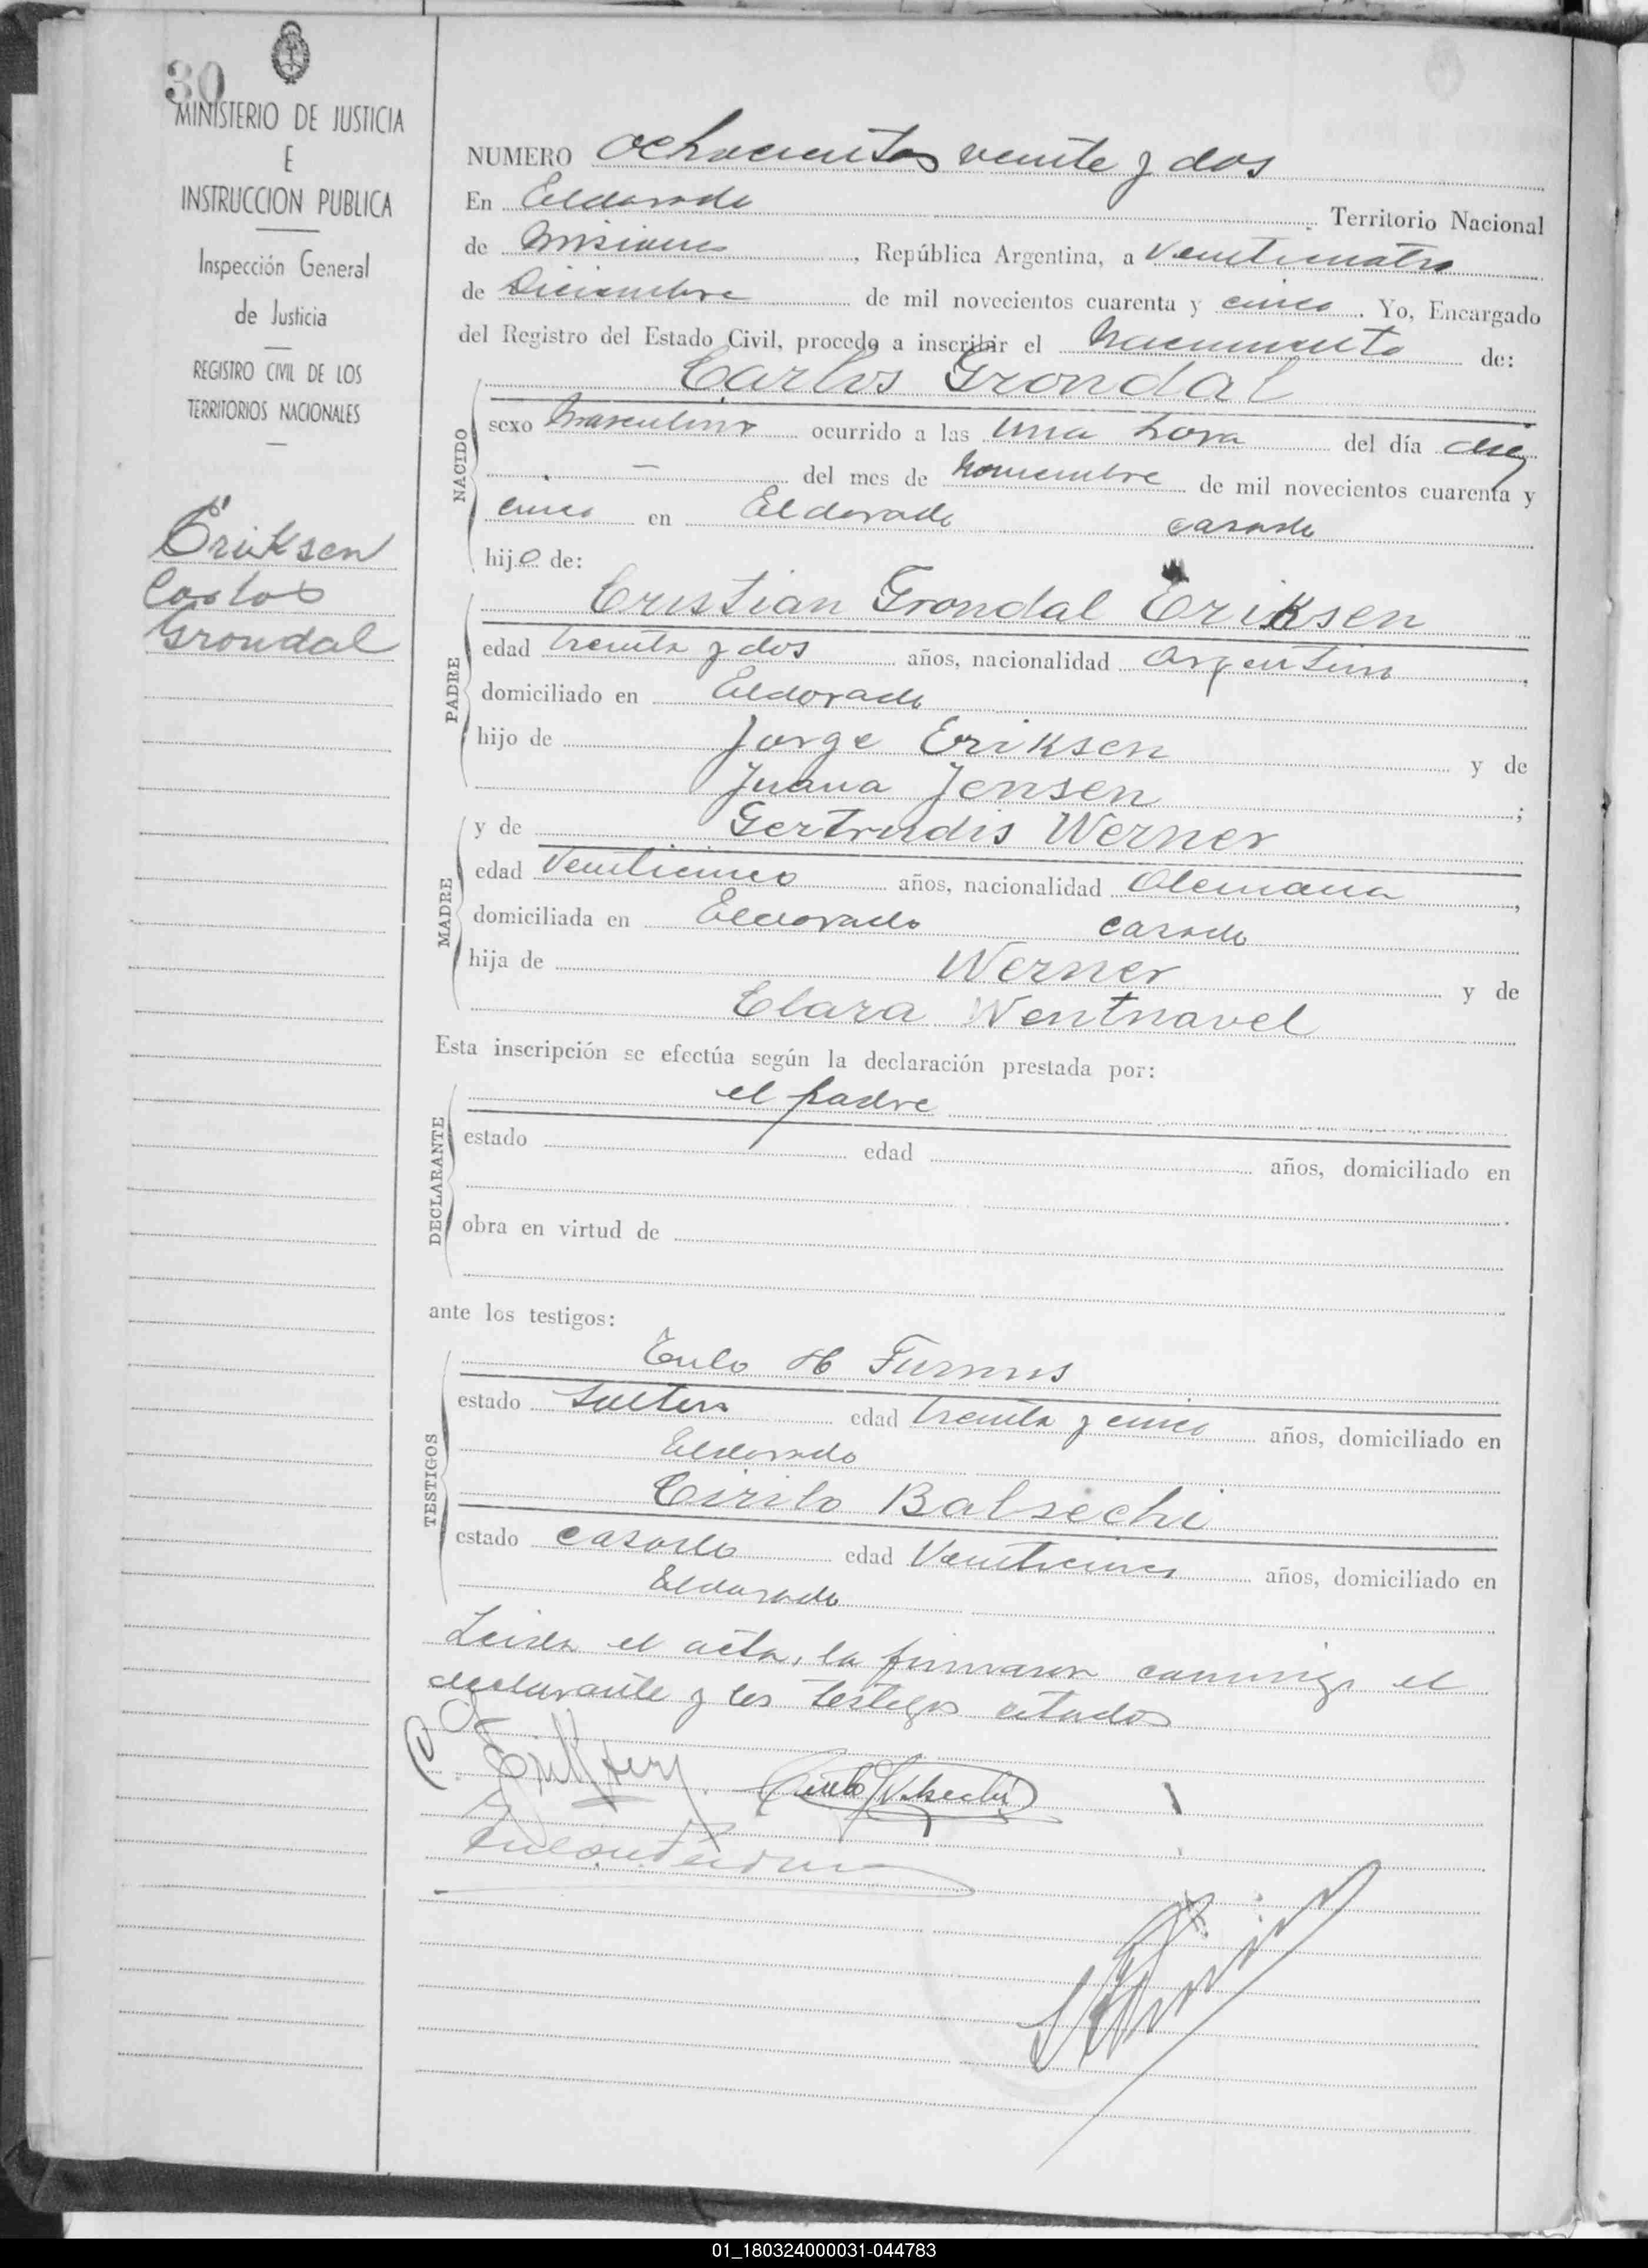 30
MINISTERIO DE JUSTICIA
E
INSTRUCCION PUBLICA
Inspección General
de Justicia
REGISTRO CIVIL DE LOS
TERRITORIOS NACIONALES
Eriksen
Carlos
Grondal
NUMERO ochocientos veinte y dos
En Eldorado Territorio Nacional
de Misiones, República Argentina, a Veinticuatro
de Diciembre de mil novecientos cuarenta y cinco. Yo, Encargado
del Registro del Estado Civil, procedo a inscribir el Nacimiento de:
Carlos Grondal
NACIDO
sexo Masculino ocurrido a las una hora del día diez
— del mes de Noviembre de mil novecientos cuarenta y
cinco en Eldorado casado
hijo de:
Cristian Grondal Eriksen
PADRE
edad treinta y dos años, nacionalidad Argentino,
domiciliado en Eldorado
hijo de Jorge Eriksen y de
Juana Jensen;
y de Gertrudis Werner
MADRE
edad Veinticinco años, nacionalidad Alemana,
domiciliada en Eldorado casado
hija de Werner y de
Clara Wentnavel
Esta inscripción se efectúa según la declaración prestada por:
el padre
DECLARANTE
estado edad años, domiciliado en
obra en virtud de
ante los testigos:
Tulo H Furnus
TESTIGOS
estado soltero edad treinta y cinco años, domiciliado en
Eldorado
Cirilo Balsechi
estado casado edad Veinticinco años, domiciliado en
Eldorado
Leida el acta, la firmaron conmigo el
declarante y los testigos citados
01_180324000031-044783